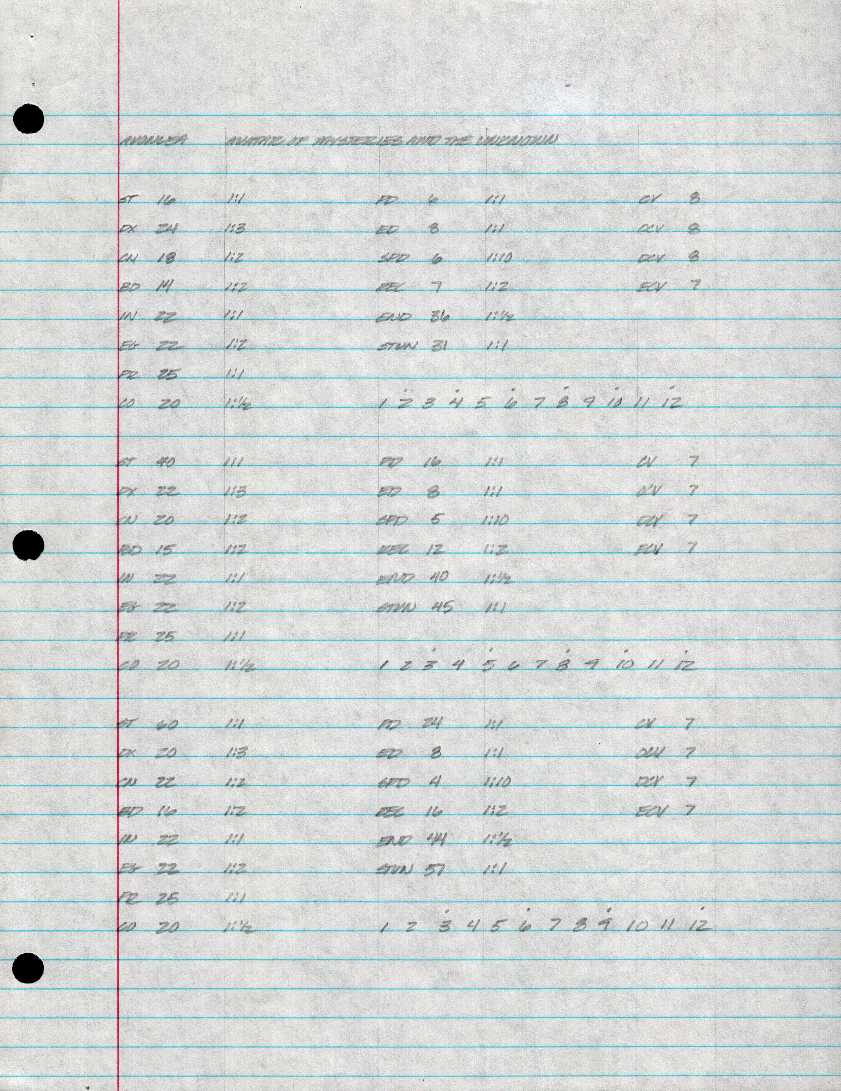 AVONLEA AVATAR OF MYSTERIES AND THE UNKNOWN
ST 16 1:1 PD 6 1:1 CV 8
DX 24 1:3 ED 8 1:1 OCV 8
CN 18 1:2 SPD 6 1:10 DCV 8
BD 14 1:2 REC 7 1:2 ECV 7
IN 22 1:1 END 36 1:½
EG 22 1:2 STUN 31 1:1
PR 25 1:1
CO 20 1:½ 1 2 3 4 5 6 7 8 9 10 11 12
ST 40 1:1 PD 16 1:1 CV 7
DX 22 1:3 ED 8 1:1 OCV 7
CN 20 1:2 SPD 5 1:10 DCV 7
BD 15 1:2 REC 12 1:2 ECV 7
IN 22 1:1 END 40 1:½
EG 22 1:2 STUN 45 1:1
PR 25 1:1
CO 20 1:½ 1 2 3 4 5 6 7 8 9 10 11 12
ST 60 1:1 PD 24 1:1 CV 7
DX 20 1:3 ED 8 1:1 OCV 7
CN 22 1:2 SPD 4 1:10 DCV 7
BD 16 1:2 REC 16 1:2 ECV 7
IN 22 1:1 END 44 1:½
EG 22 1:2 STUN 57 1:1
PR 25 1:1
CO 20 1:½ 1 2 3 4 5 6 7 8 9 10 11 12